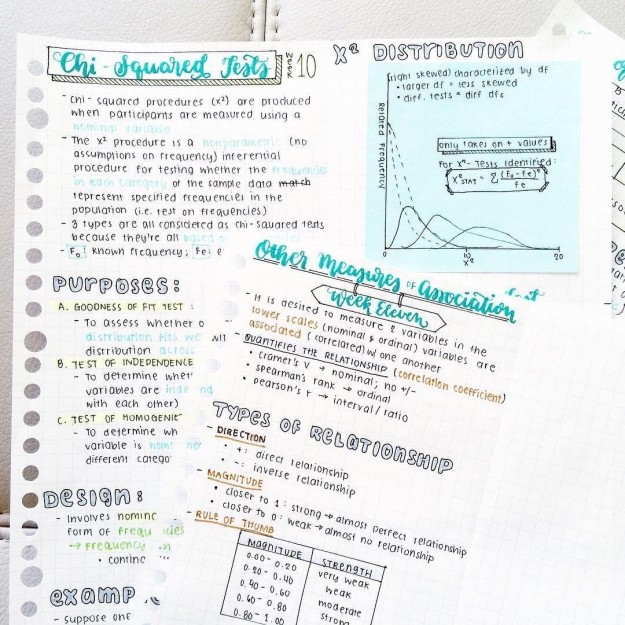 Chi-Squared Tests
WEEK 10
- Chi-squared procedures (x²) are produced
when participants are measured using a
nominal variable
- The x² procedure is a nonparametric (no
assumptions on frequency) inferential
procedure for testing whether the frequencies
in each category of the sample data match
represent specified frequencies in the
population (i.e. test on frequencies)
- 3 types are all considered as chi-squared tests
because they're all based
- Fo: known frequency; Fe:
PURPOSES:
A. GOODNESS OF FIT TEST:
- To assess whether
distribution fits
distribution across
B. TEST OF INDEPENDENCE
- To determine
variables are
with each other)
C. TEST OF
- To determine
variable is
different
DESIGN:
- Involves
form of
→ Frequency
•
- suppose one
X² DISTRIBUTION
(right skewed) characterized by df
• larger df = less skewed
• diff. tests = diff dfs
only takes on + values
For x²-Tests Identified:
X²STAT = Σ (Fo-Fe)²
Fe
Related Frequency
0
10
20
X²
Other Measures of Association
Week Eleven
- It is desired to measure 2 variables in the
lower scales (nominal & ordinal) variables are
associated (correlated) w/ one another
- QUANTIFIES THE RELATIONSHIP (correlation coefficient)
• cramer's v → nominal; no +/-
• spearman's rank → ordinal
• pearson's r → interval/ratio
TYPES OF RELATIONSHIP
- DIRECTION
• +: direct relationship
• -: inverse relationship
- MAGNITUDE
• closer to 1: strong → almost perfect relationship
• closer to 0: weak → almost no relationship
- RULE OF THUMB
MAGNITUDE STRENGTH
0.00 - 0.20 very weak
0.20 - 0.40 weak
0.40 - 0.60 moderate
0.60 - 0.80 strong
0.80 - 1.00